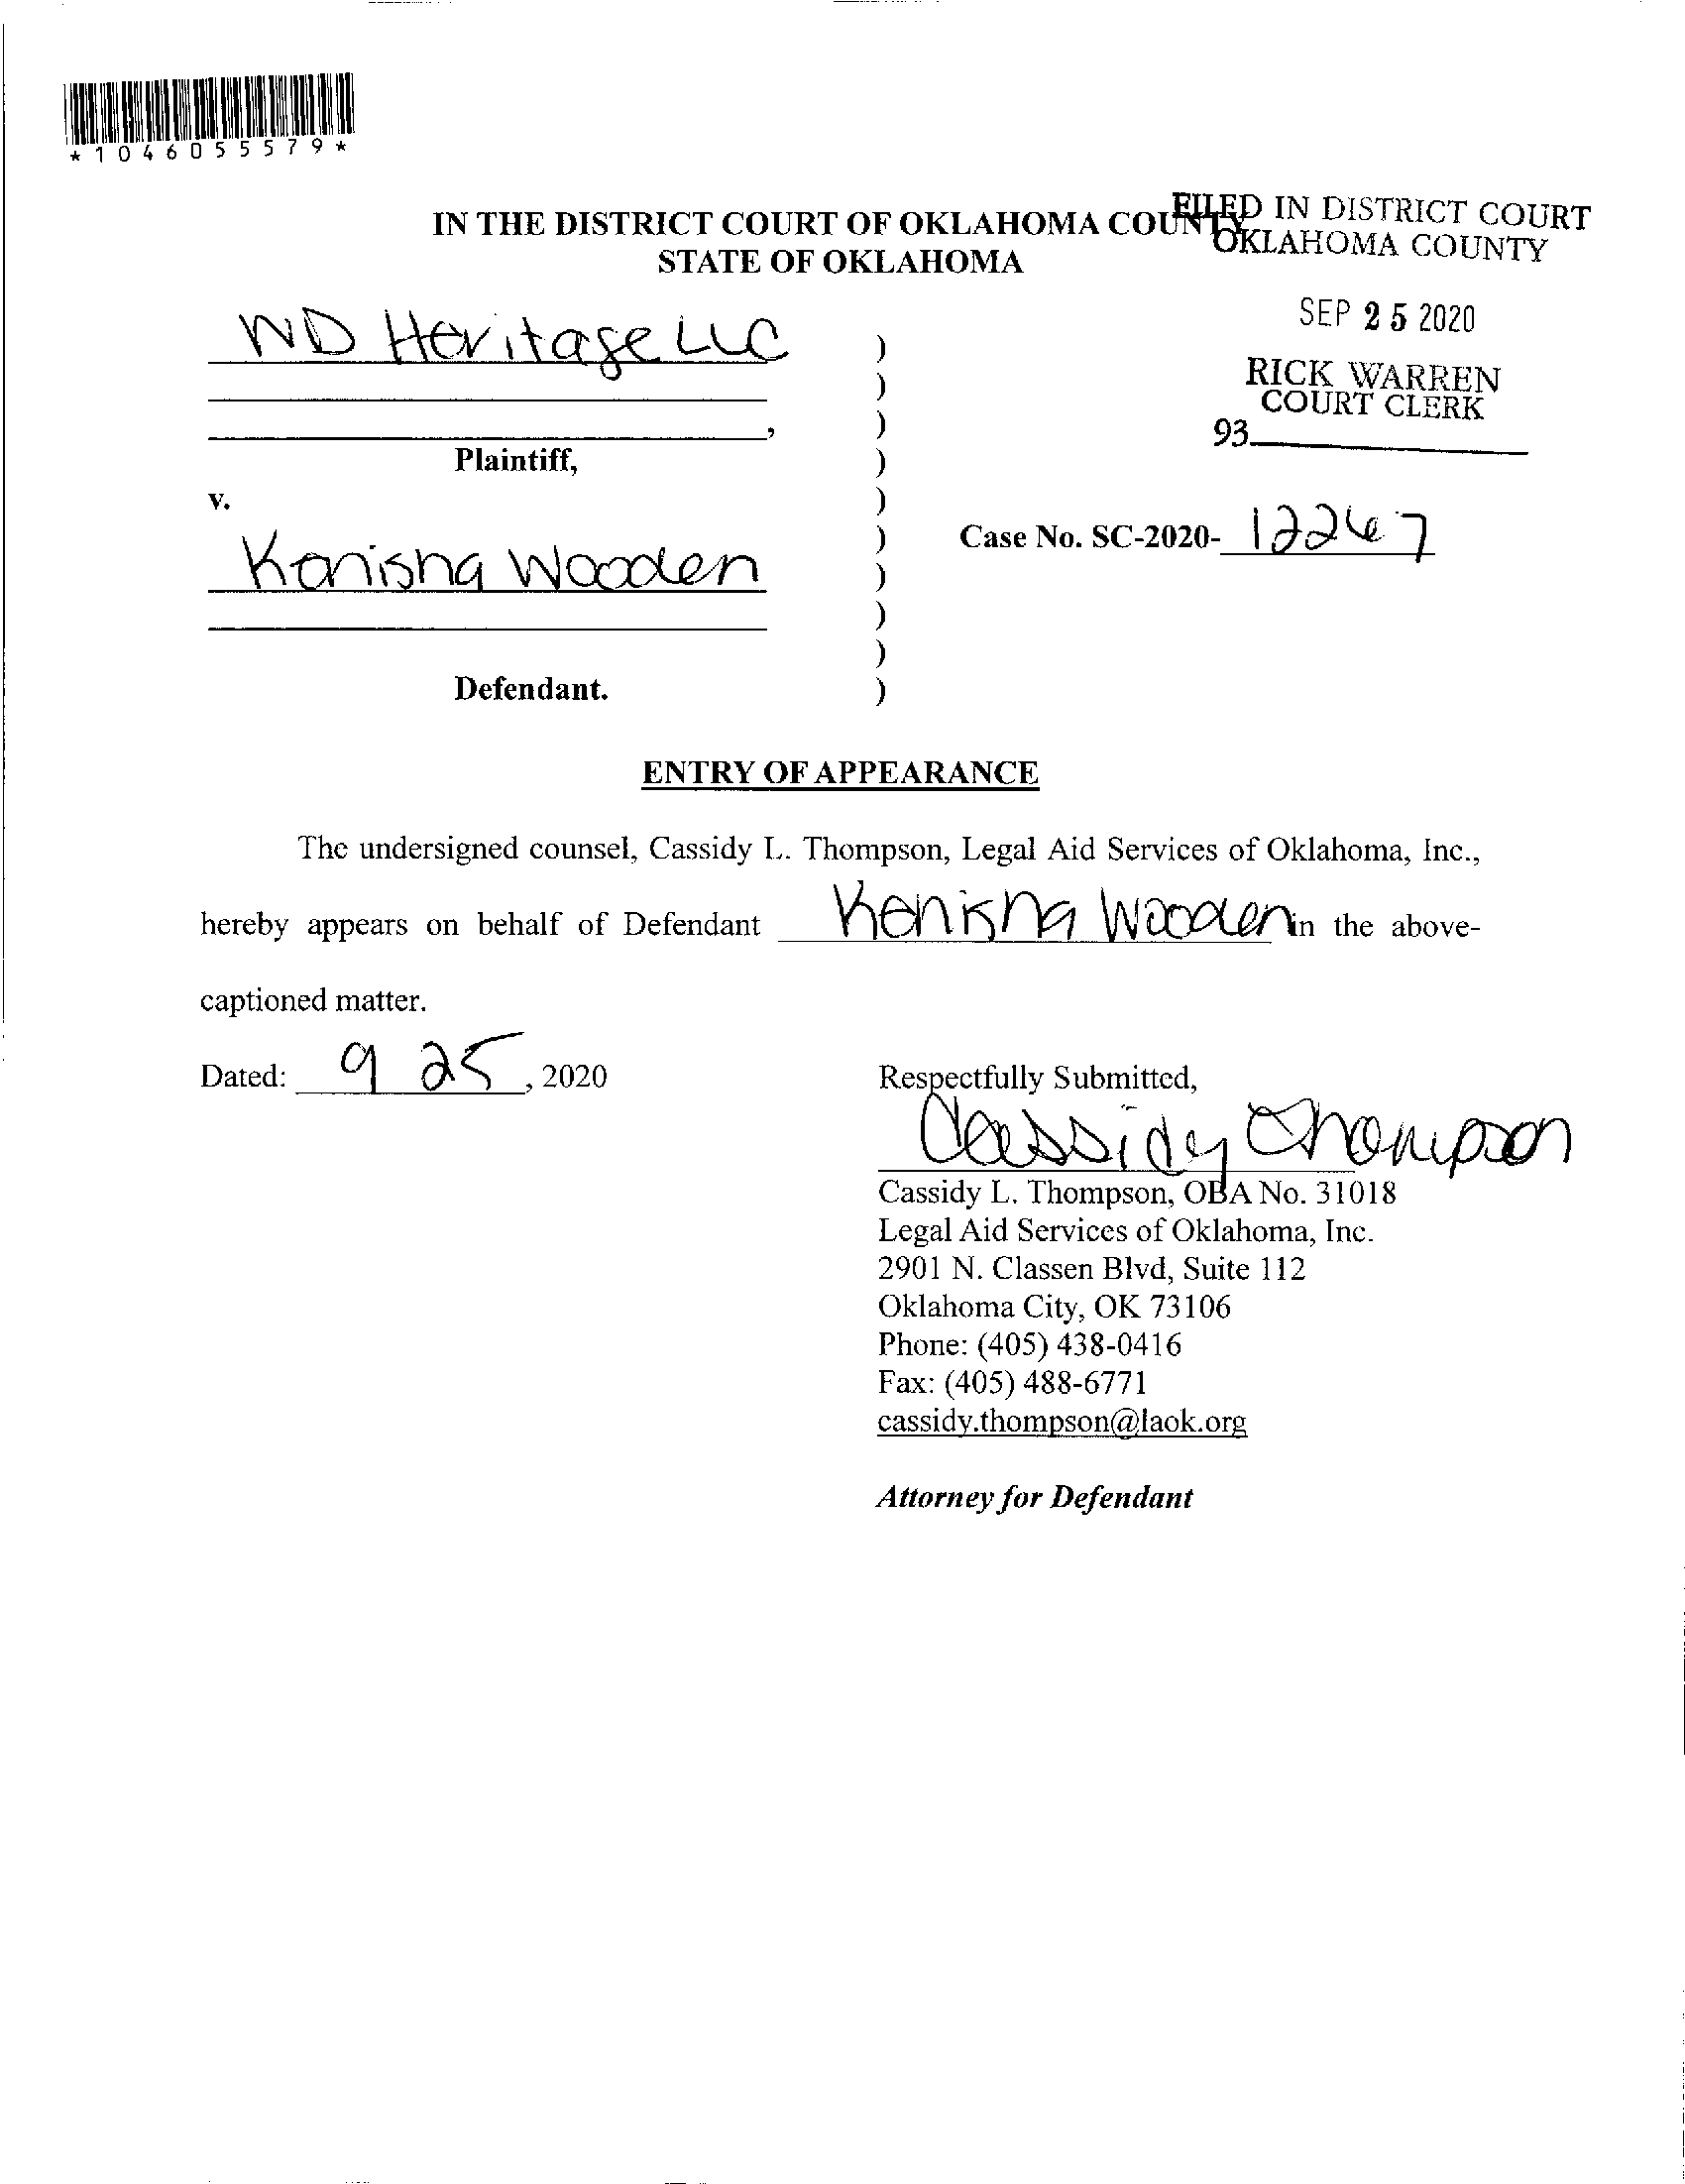 *1046055579*
IN THE DISTRICT COURT OF OKLAHOMA COUNTY
STATE OF OKLAHOMA
FILED IN DISTRICT COURT
OKLAHOMA COUNTY
SEP 25 2020
RICK WARREN
COURT CLERK
93
WD Heritage LLC
,
Plaintiff,
v.
Case No. SC-2020- 12267
Kenisha Wooden
Defendant.
)
)
)
)
)
)
)
)
)
)
ENTRY OF APPEARANCE
The undersigned counsel, Cassidy L. Thompson, Legal Aid Services of Oklahoma, Inc.,
hereby appears on behalf of Defendant Kenisha Wooden in the above-
captioned matter.
Dated: 9 25, 2020
Respectfully Submitted,
Cassidy Thompson
Cassidy L. Thompson, OBA No. 31018
Legal Aid Services of Oklahoma, Inc.
2901 N. Classen Blvd, Suite 112
Oklahoma City, OK 73106
Phone: (405) 438-0416
Fax: (405) 488-6771
cassidy.thompson@laok.org
Attorney for Defendant